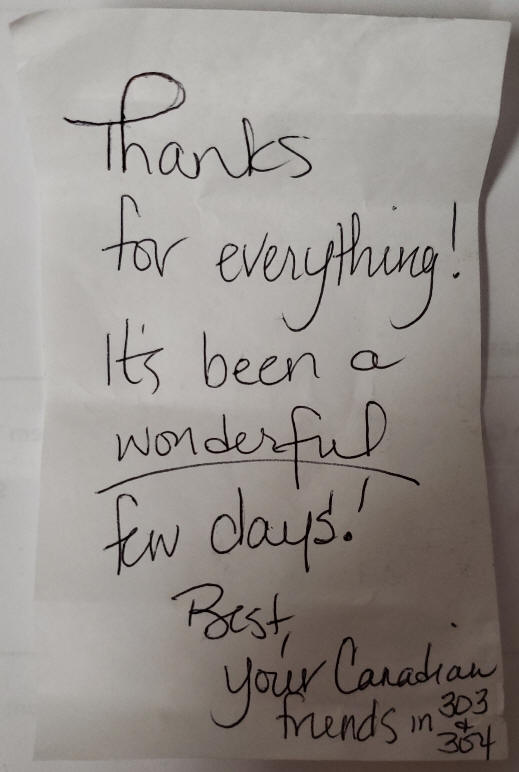 Thanks
for everything!
It's been a
wonderful
few days!
Best,
your Canadian
friends in 303
&
304